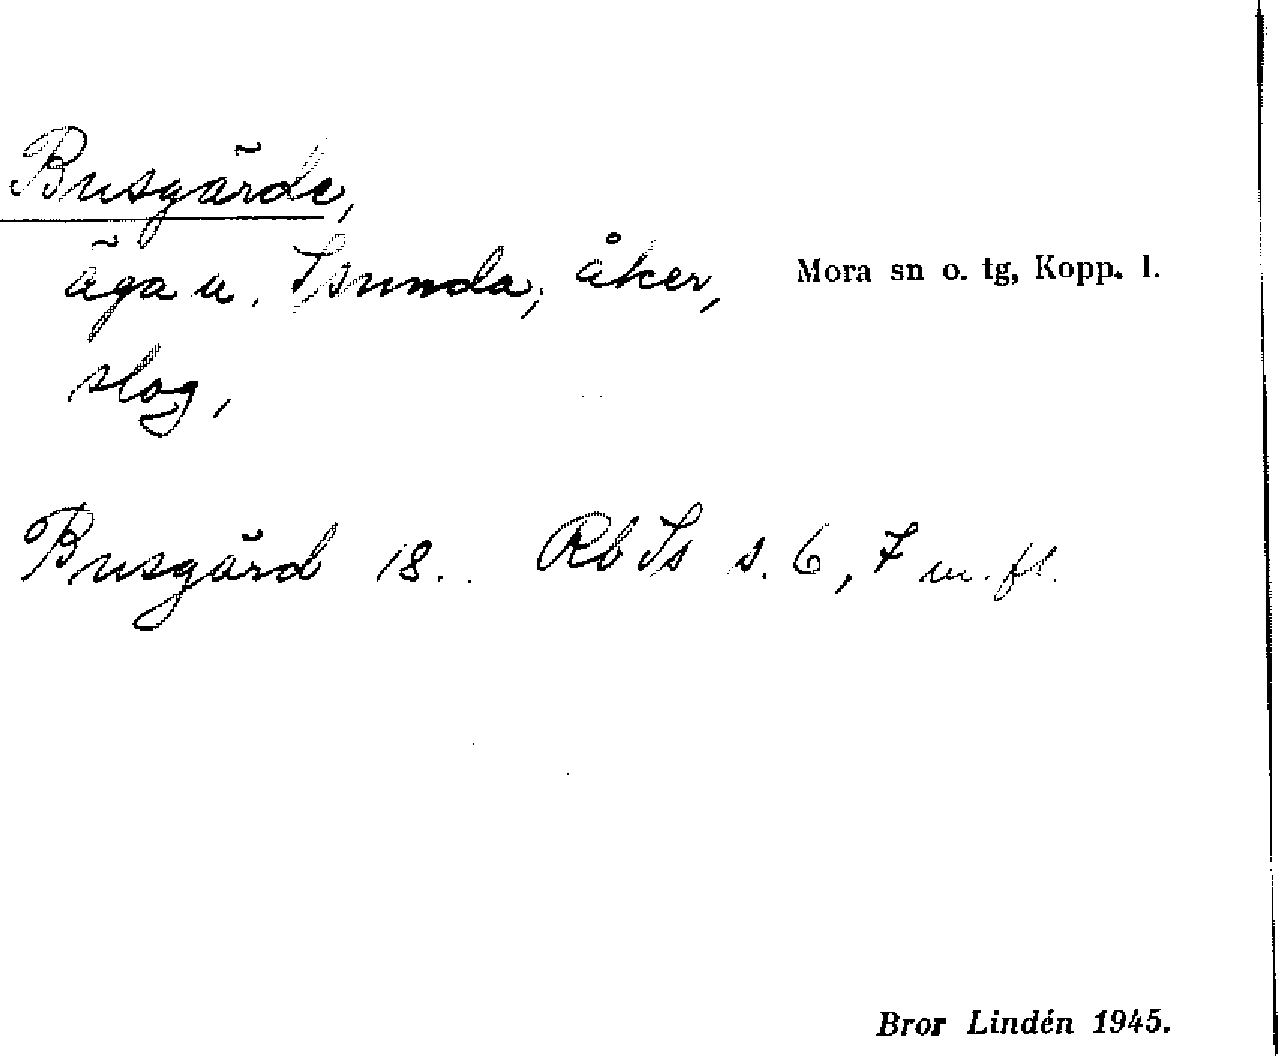 Busgärde,
äga u. Isunda, åker,
Mora sn o. tg, Kopp. l.
slog,
Busgärd 18.. Rb Is s. 6, 7 m. fl.
Bror Lindén 1945.